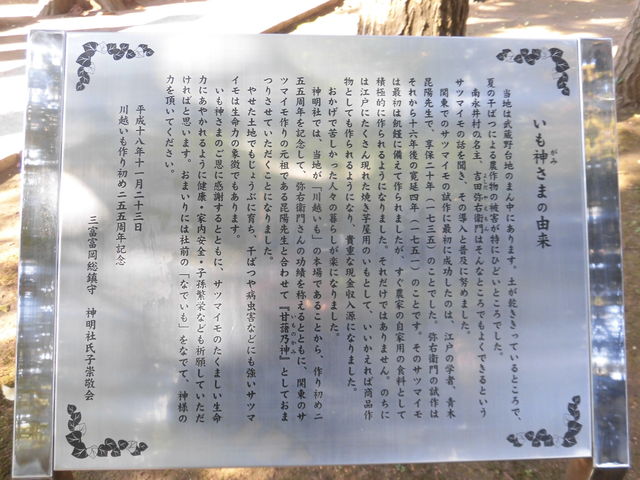 いも神さまの由来
がみ
当地は武蔵野台地のまん中にあります。土が乾ききっているところで、
夏の干ばつによる農作物の被害が特にひどいところでした。
南永井村の名主、吉田弥右衛門はそんなところでもよくできるという
サツマイモの話を聞き、その導入と普及に努めました。
関東でのサツマイモの試作に最初に成功したのは、江戸の学者、青木
昆陽先生で、享保二十年(一七三五)のことでした。弥右衛門の試作は
それから十六年後の寛延四年(一七五一)のことです。そのサツマイモ
は最初は飢饉に備えて作られましたが、すぐ農家の自家用の食料として
積極的に作られるようになりました。それだけではありません。のちに
は江戸にたくさん現れた焼き芋屋用のいもとして、いいかえれば商品作
物としても作られるようになり、貴重な現金収入源になりました。
おかげで苦しかった人々の暮らしが楽になりました。
神明社では、当地が「川越いも」の本場であることから、作り初め二
五五周年を記念して、弥右衛門さんの功績を称えるとともに、関東のサ
ツマイモ作りの元祖である昆陽先生と合わせて『甘藷乃神』としておま
つりさせていただくことになりました。
やせた土地でもじょうぶに育ち、干ばつや病虫害などにも強いサツマ
イモは生命力の象徴でもあります。
いも神さまのご恩に感謝するとともに、サツマイモのたくましい生命
力にあやかれるように健康・家内安全・子孫繁栄なども祈願していただ
ければと思います。おまいりには社前の「なでいも」をなでて、神様の
力を頂いてください。
平成十八年十一月二十三日
川越いも作り初め二五五周年記念
三富富岡総鎮守 神明社氏子崇敬会